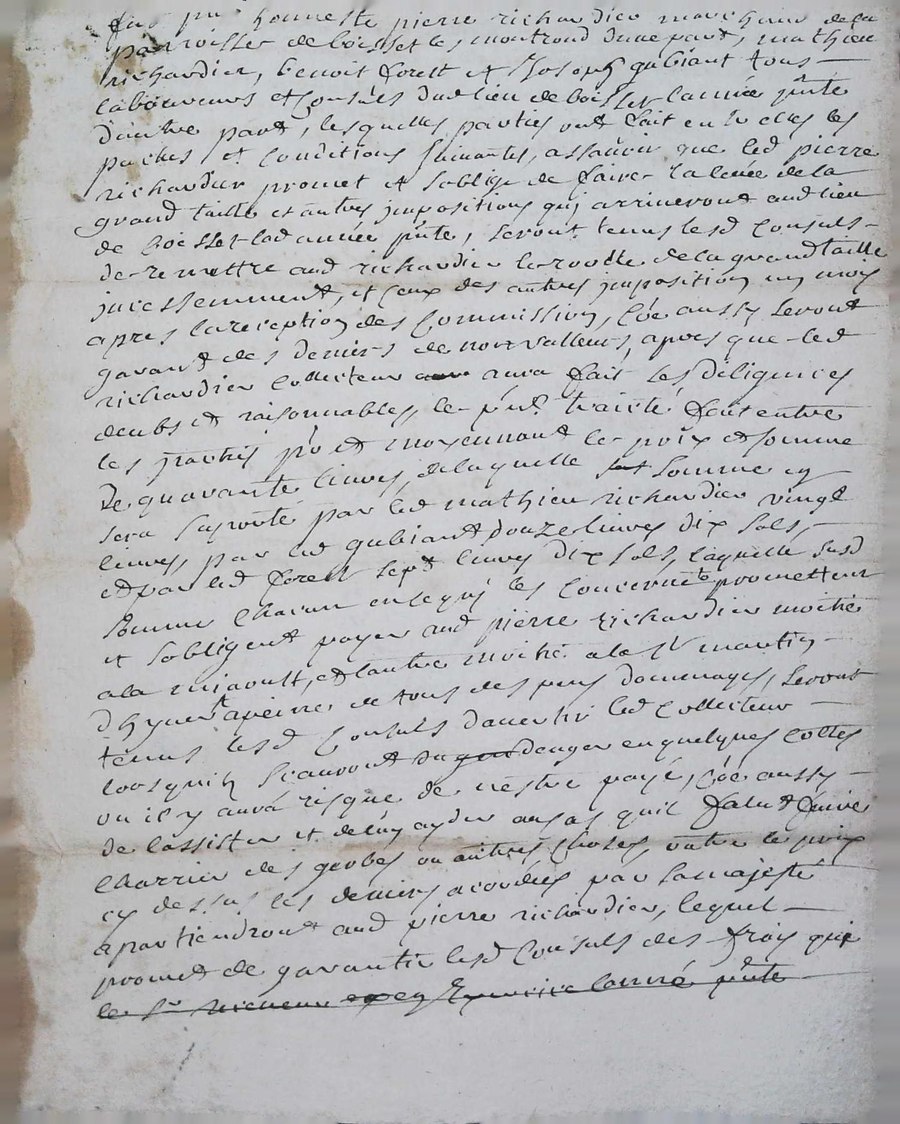 fut pnt honneste pierre richardier marchand de la
parroisse de boisset les montrond dune part, mathieu
richardier, benoit forest et Joseph gubiant tous
laboureurs et Consuls dud lieu de boisset lannée pnte
dautre part, lesquelles parties ont fait entre elles les
paches et Conditions suivantes, assavoir que led pierre
richardier promet et soblige de faire la levée de la
grand taille et autres impositions quj arriveront aud lieu
de boisset lad année pnte, seront tenus lesd Consuls
de remettre aud richardier le roolle de la grand taille
incessemment, et ceux des autres imposition un mois
apres la reception des Commission, Coe aussy seront
garand des deniers de non valleurs, apres que led
richardier Collecteur aura fait les diligences
deubs et raisonnables, le pnt traicté fait entre
les parties po et moyennant le prix et somme
De quarante livres, de laquelle somme en
sera suporté par led mathieu richardier vingt
livres, par led gubiant douze livres dix sols,
et par led forest sept livres dix sols, laquelle susd
somme Chacun en ce quj les Concernet promettent
et sobligent payer aud pierre richardier moitié
a la miaoust, et lautre moitié a la st martin
dhyvert apeine de tous despens dommages, seront
tenus lesd Consuls davertir led Collecteur
lorsquils scauront du danger en quelques Cottes
ou il y aura risque de nestre payé, Coe aussy
de lassister et de luy ayder au cas quil falut faire
Charrier des gerbes ou autres Choses, outre le prix
cy dessus les deniers acordés par sa majesté
apartiendront aud pierre richardier, lequel
promet de garantir lesd Consuls des frais que
le Sr receveur en Exercice lanné pnte